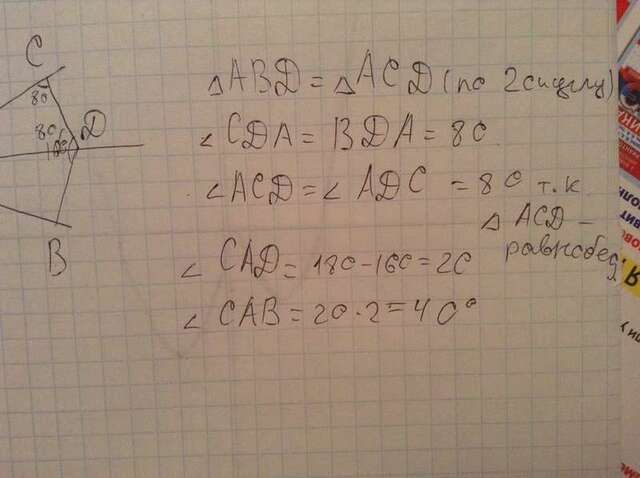 C
80
80
D
B
△ABD = △ACD (по 2сим углу)
∠CDA = BDA = 80
∠ACD = ∠ADC = 80 т.к.
△ ACD –
равнобед.
∠CAD = 180-160=20
∠CAB = 20·2=40°